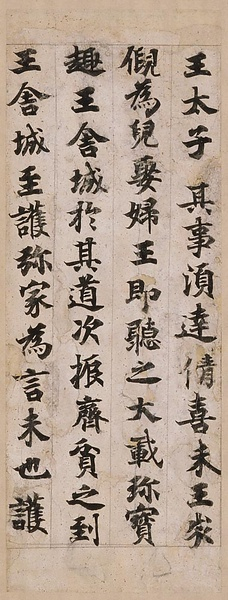 王太子其事須達倩喜未王
倪為兒娶婦王即聽之大載弥寶
趣王舍城於其道次振齊貧之到
王舍城至護弥家為言未也護